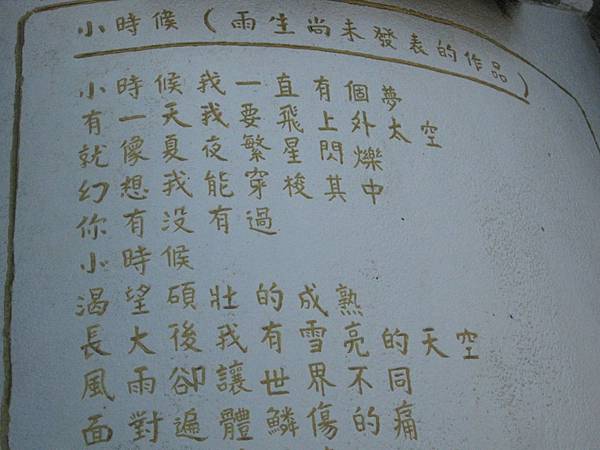 小時候（雨生尚未發表的作品）
小時候我一直有個夢
有一天我要飛上外太空
就像夏夜繁星閃爍
幻想我能穿梭其中
你有沒有過
小時候
渴望碩壯的成熟
長大後我有雪亮的天空
風雨卻讓世界不同
面對遍體鱗傷的痛